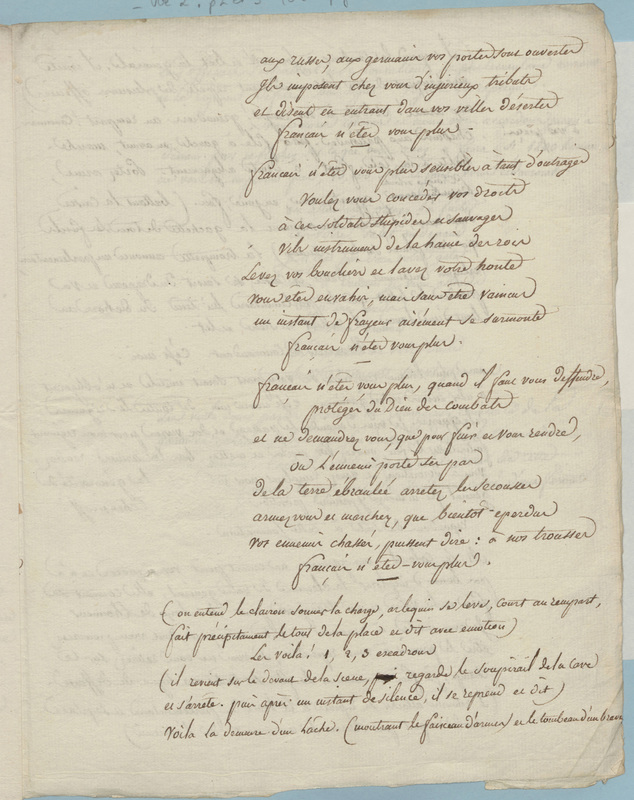 aux russes, aux germains vos portes sont ouvertes
Ils imposent chez vous d'injurieux tributs
et disent en entrant dans vos villes désertes
français n'êtes vous plus -
français n'êtes vous plus sensibles à tant d'outrages
Voulez vous concéder vos droits
à ces soldats stupides et sauvages
Vils instrumens de la haine des rois
Levez vos boucliers et lavez votre honte
Vous êtes envahis, mais sans être vaincus
un instant de frayeur aisément se surmonte
français n'êtes vous plus.
français n'êtes vous plus, quand il faut vous deffendre,
protégés du Dieu des combats
et ne demandez vous, que pour fuir et vous rendre,
Où l'ennemi porte ses pas
de la terre ébranlée arretez les secousses
armez vous et marchez, que bientôt eperdus
Vos ennemis chassés, puissent dire : à nos trousses
français n'êtes-vous plus.
(on entend le clairon sonner la charge, arlequin se leve, court au rempart,
fait précipitament le tour de la place et dit avec emotion)
Les Voila ! 1, 2, 3 escadrons
(il revient sur le devant de la scene, regarde le soupirail de la cave
et s'arrete. puis après un instant de silence, il se reprend et dit)
Voila la demeure d'un lâche. (montrant le faisceau d'armes) et le tombeau d'un brave